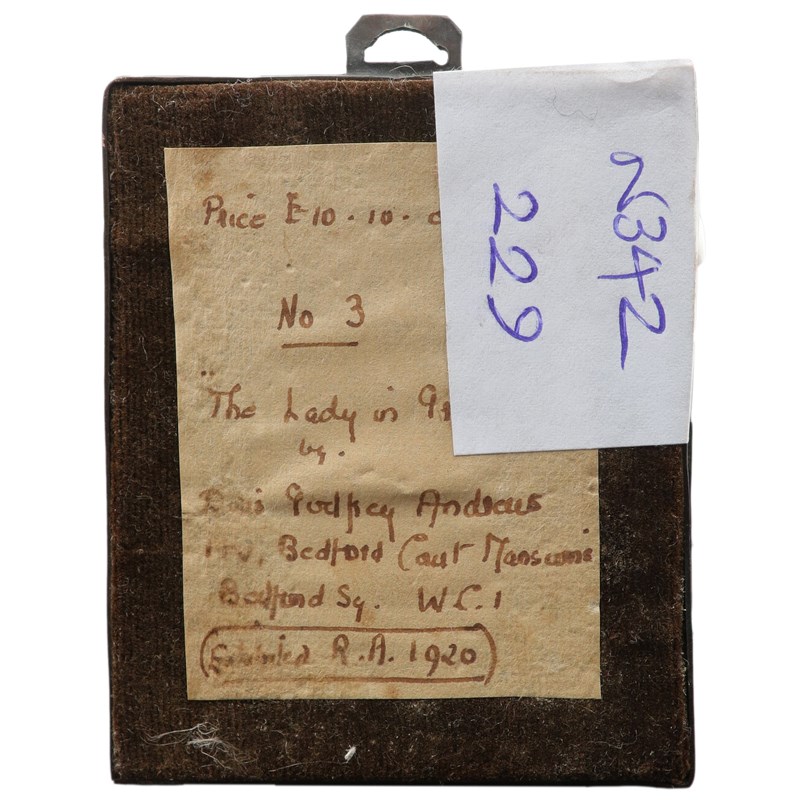 Price £10.10.
No 3
"The Lady in
by.
Godfrey Andrews
Bedford Court Mansions
Bedford Sq. W.C.1
Exhibited R.A. 1920
N342
229